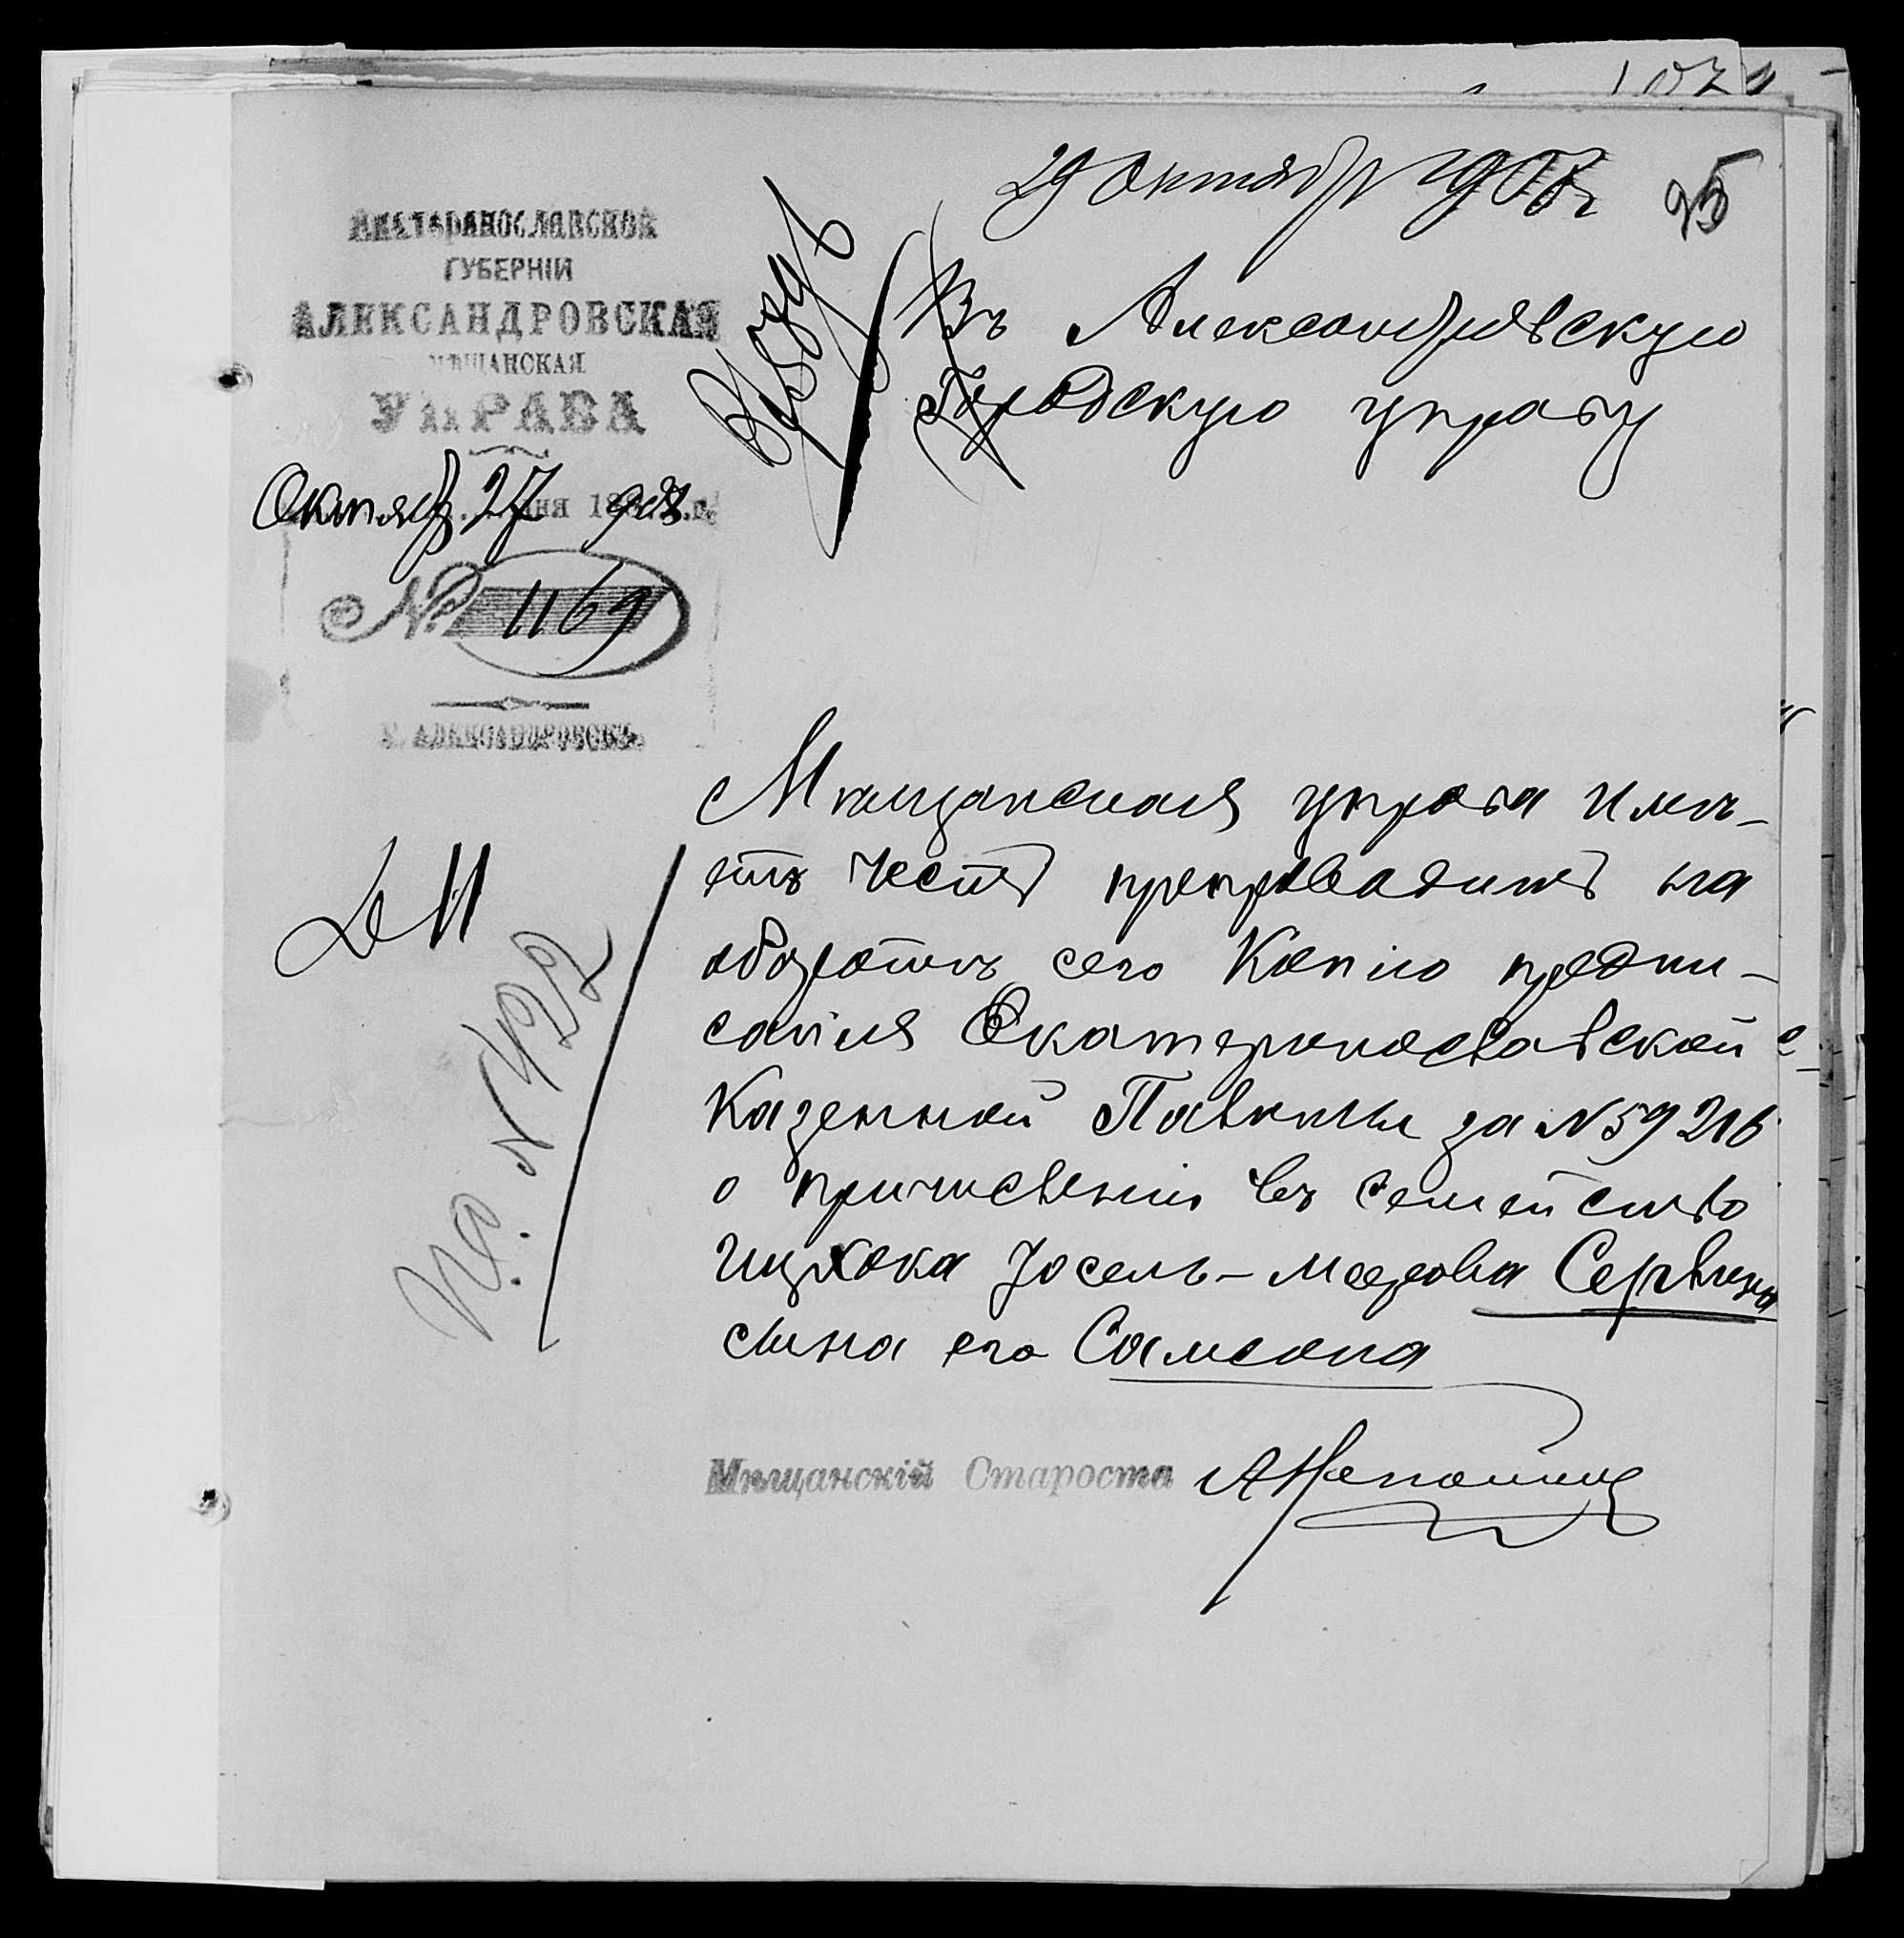 29 Октября 1908 г
95
Екатеринославской
ГУБЕРНІИ
АЛЕКСАНДРОВСКАЯ
МѢЩАНСКАЯ
УПРАВА
Октября 27 дня 1908 г.
№ 1169
Г. АЛЕКСАНДРОВСКЪ.
Въ Александровскую
Городскую управу
Мѣщанская управа имѣ-
етъ честь препроводить на
оборотѣ сего копію предпи-
санія Екатеринославской
Казенной Палаты за N 59216
о причисленіи въ семейство
Ицхока Іосель-Меерова
сына его Самсона
N 422
Мѣщанскій Староста